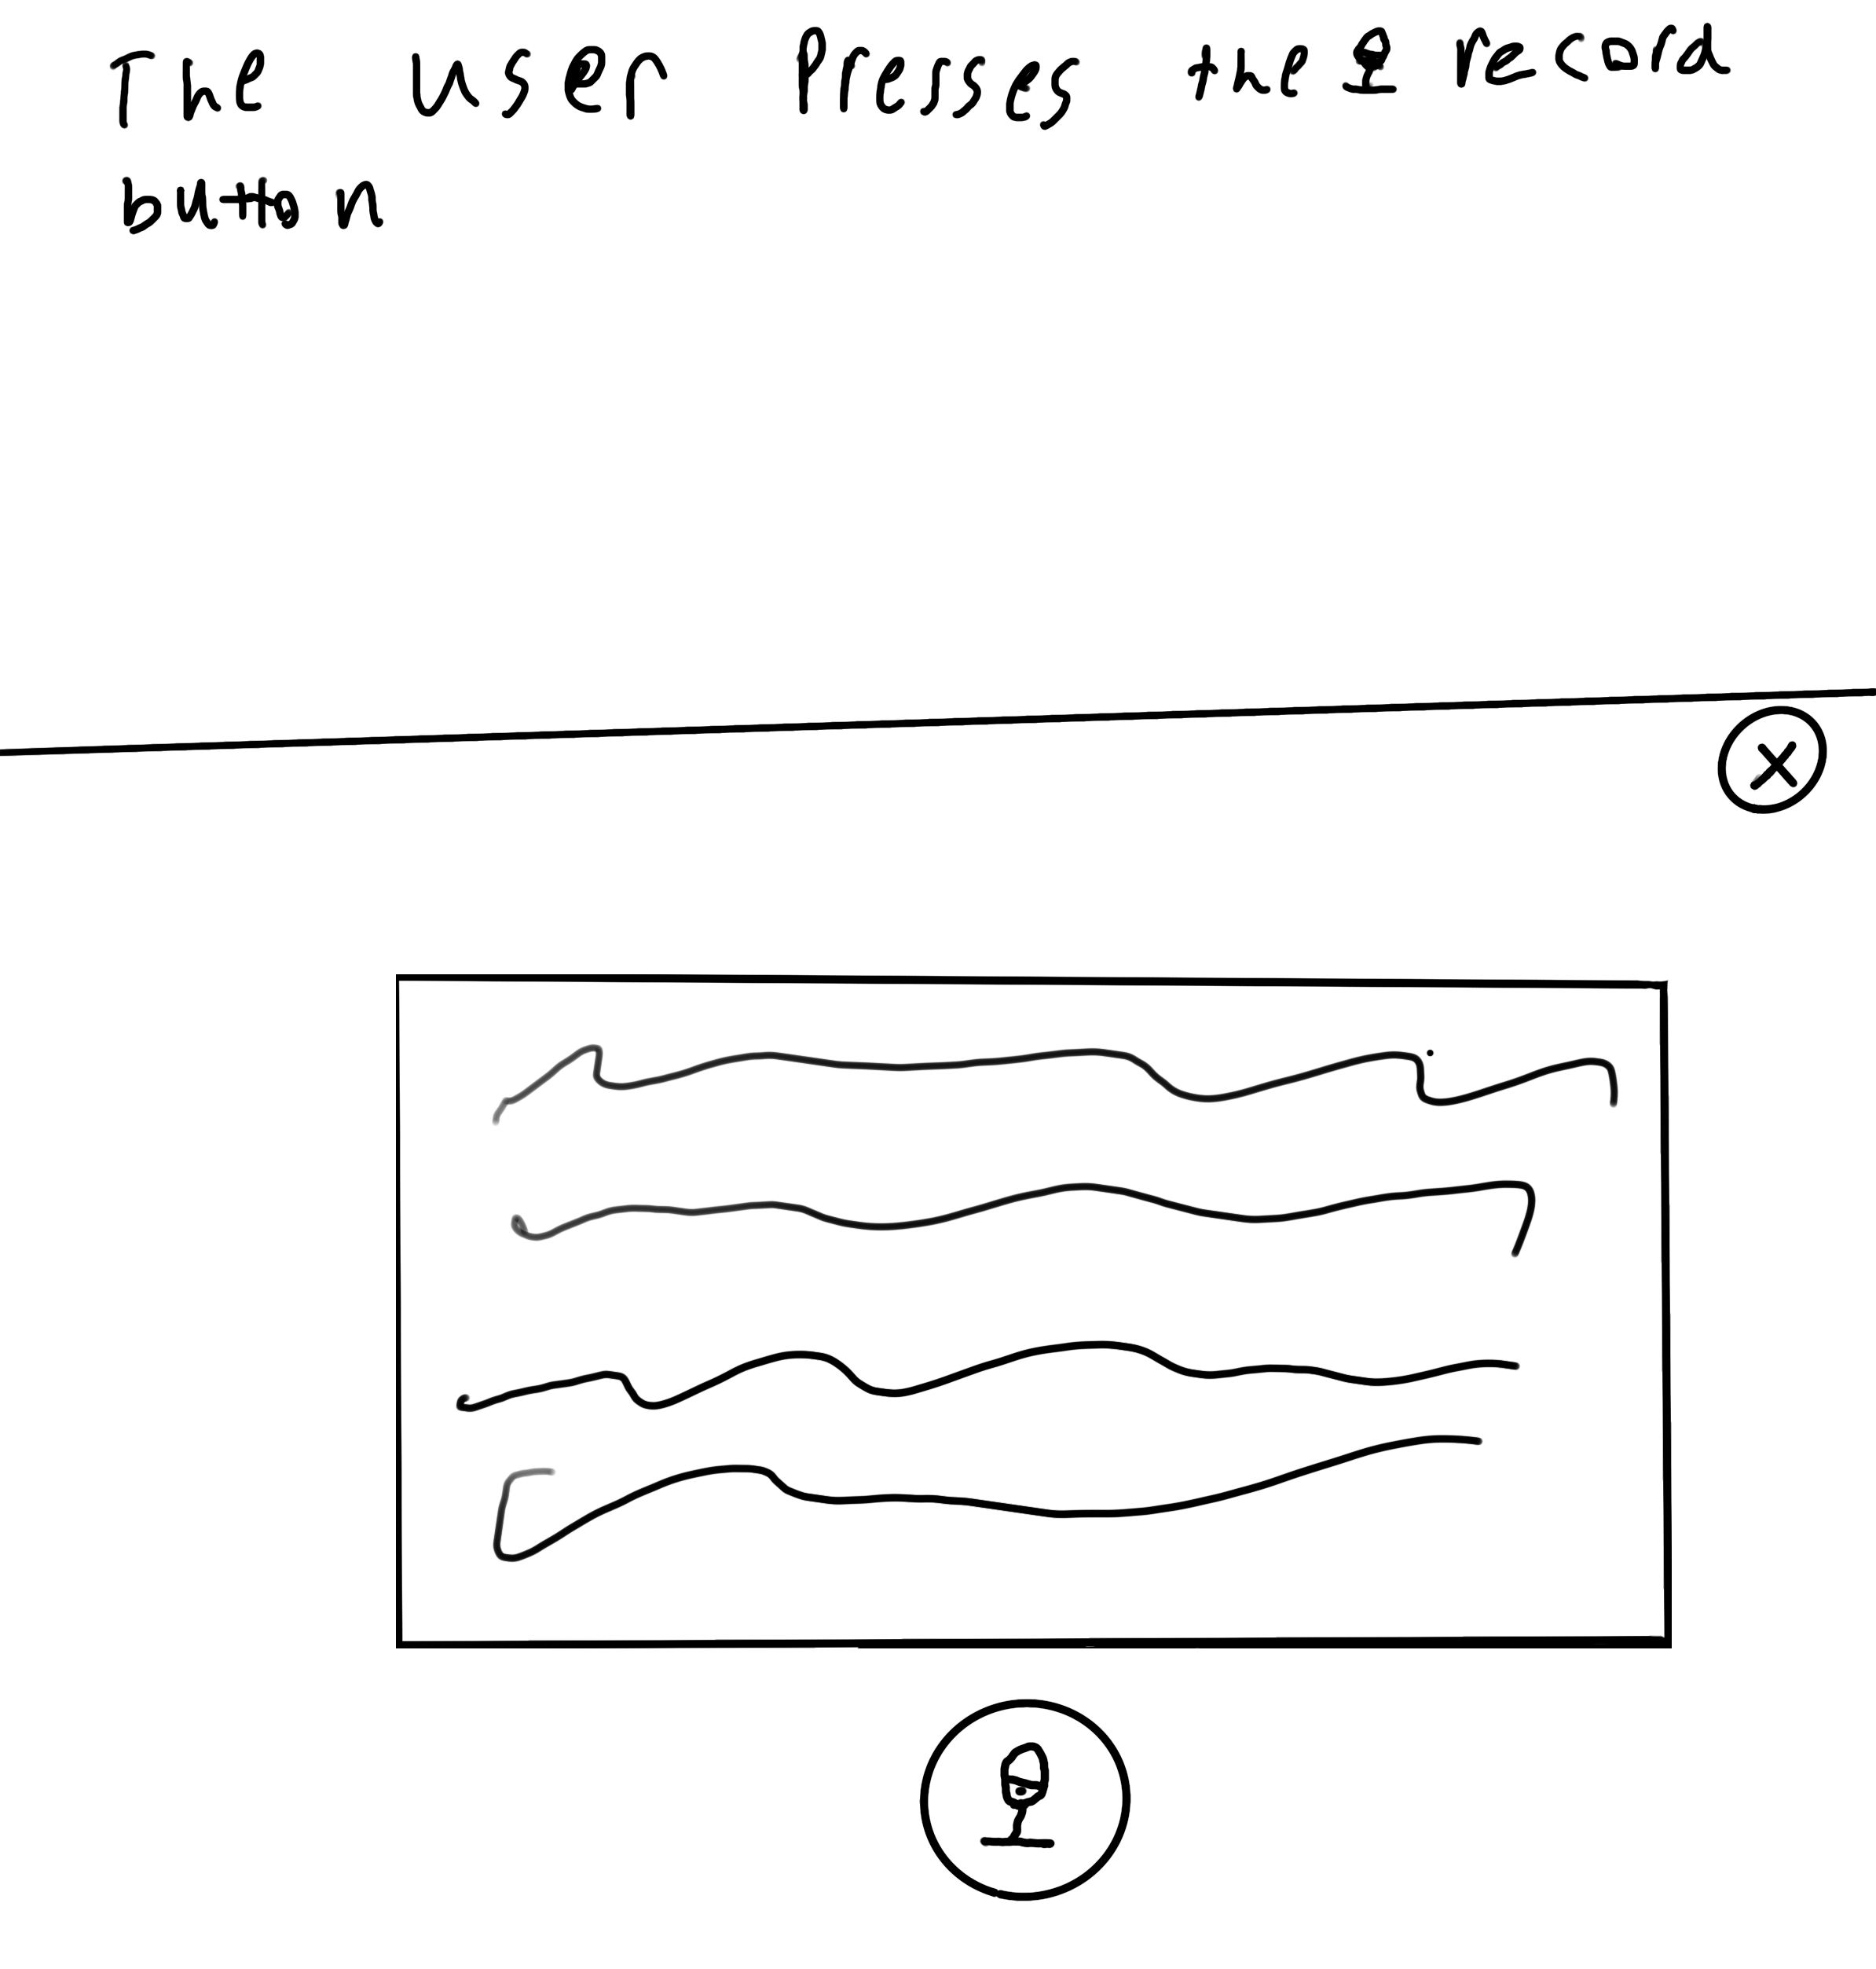 The user Presses the record
button